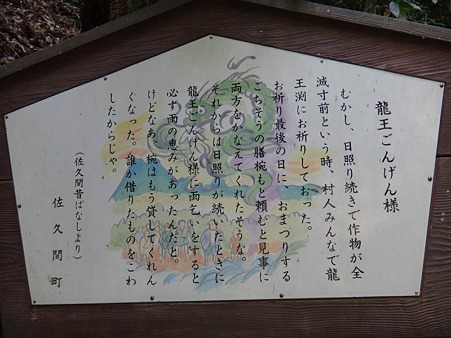 龍王ごんげん様
むかし、日照り続きで作物が全
滅寸前という時、村人みんなで龍
王渕にお祈りしておった。
お祈り最後の日に、おまつりする
ごちそうの膳椀もと頼むと見事に
両方をかなえてくれたそうな。
それからは日照りが続いたときに
龍王ごんげん様に雨乞いをすると
必す雨の恵みがあったんだと。
けどなあ、椀はもう貸してくれん
くなった。誰か借りたものをこわ
したからじゃ。
(佐久間昔ばなしより)
佐久間町